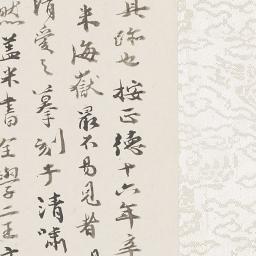 其跡也按正德十六年辛
米海嶽最不易見者
清愛之摹刻于清嘯
然蓋米書全學二王